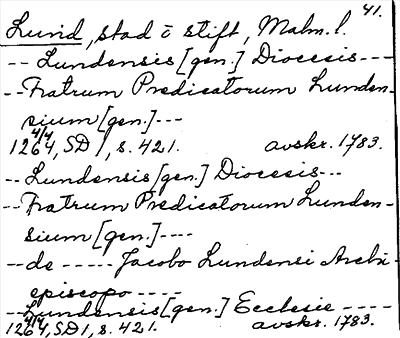 41.
Lund, stad o stift, Malm. l.
-- Lundensis [gen.] Diocesis ---
-- Fratrum Predicatorum Lunden-
sium [gen.] ---
4/4
1264, SD 1, s. 421. avskr. 1783.
-- Lundensis [gen.] Diocesis ---
-- Fratrum Predicatorum Lunden-
sium [gen.] ----
-- de ----- Jacobo Lundensi Archi-
episcopo ----
-- Lundensis [gen.] Ecclesie ----
4/4
1264, SD 1, s. 421. avskr. 1783.